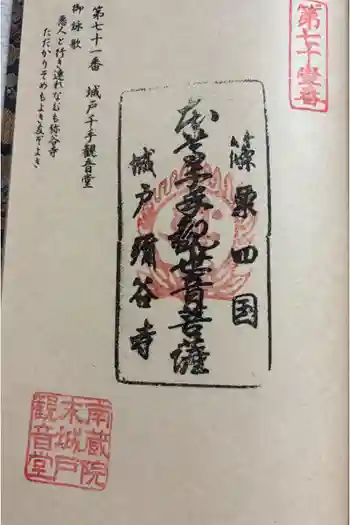 第七十壹番
篠栗四国
本尊千手観世音菩薩
城戸弥谷寺
第七十一番 城戸千手観音堂
御詠歌
悪人と行き連れなむも弥谷寺
ただかりそめもよき友ぞよき
南蔵院
木城戸
観音堂